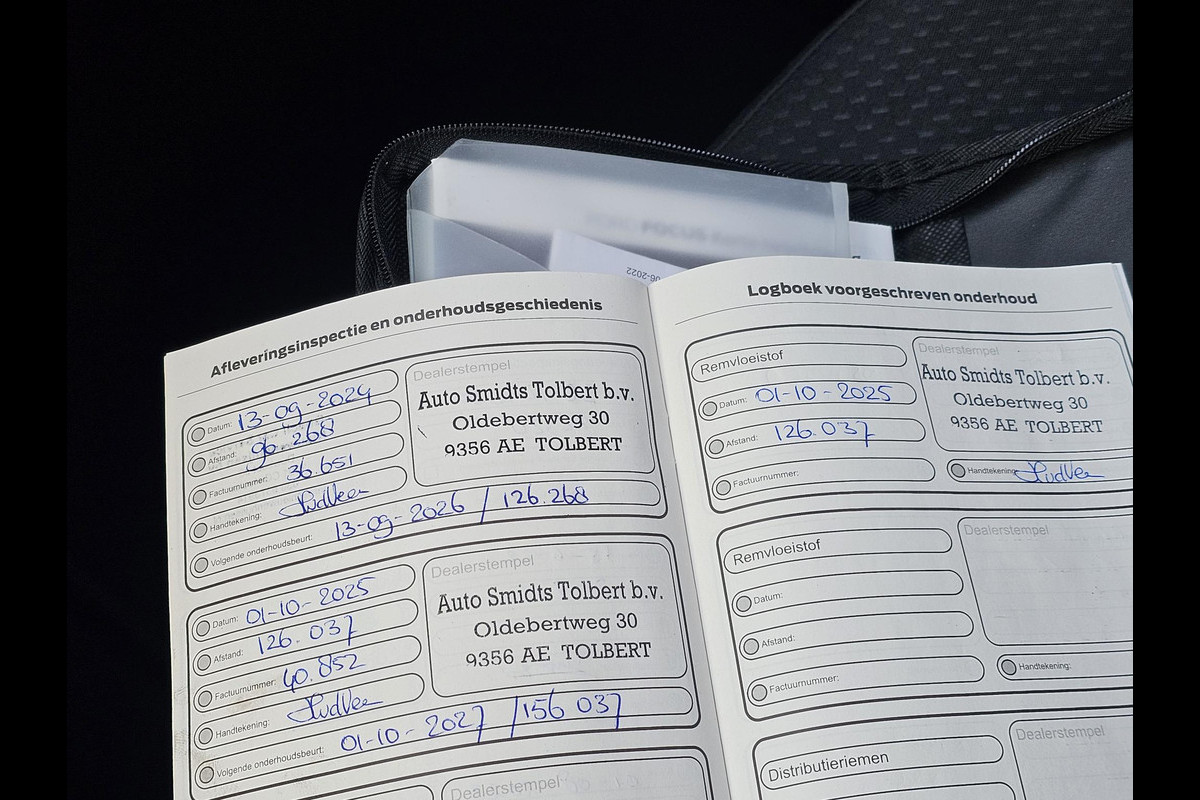 06-2022
Afleveringsinspectie en onderhoudsgeschiedenis
Datum: 13-09-2024
Afstand: 96.268
Factuurnummer: 36.651
Handtekening:
Volgende onderhoudsbeurt: 13-09-2026 / 126.268
Dealerstempel
Auto Smidts Tolbert b.v.
Oldebertweg 30
9356 AE TOLBERT
Datum: 01-10-2025
Afstand: 126.037
Factuurnummer: 40.852
Handtekening:
Volgende onderhoudsbeurt: 01-10-2027 / 156 037
Dealerstempel
Auto Smidts Tolbert b.v.
Oldebertweg 30
9356 AE TOLBERT
Dealerstempel
Logboek voorgeschreven onderhoud
Remvloeistof
Datum: 01-10-2025
Afstand: 126.037
Factuurnummer:
Dealerstempel
Auto Smidts Tolbert b.v.
Oldebertweg 30
9356 AE TOLBERT
Handtekening
Remvloeistof
Datum:
Afstand:
Factuurnummer:
Dealerstempel
Handtekening:
Distributieriemen
Dealerstempel